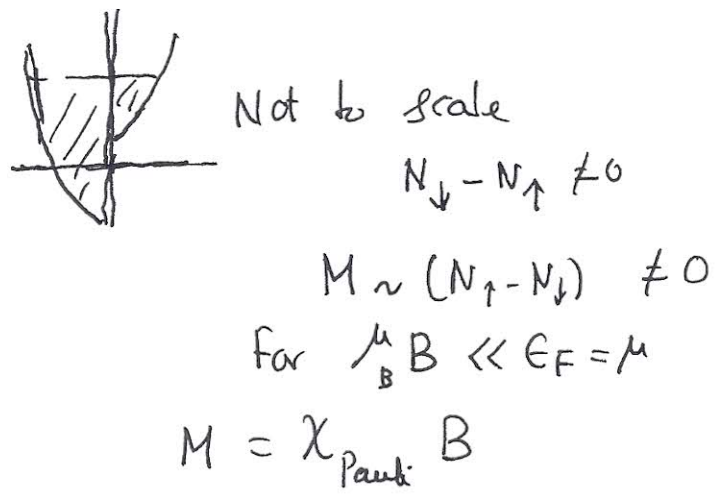 Not to scale
N↓ - N↑ ≠ 0
M ~ (N↑ - N↓) ≠ 0
For μ_B B << ϵ_F = μ
M = χ_Pauli B